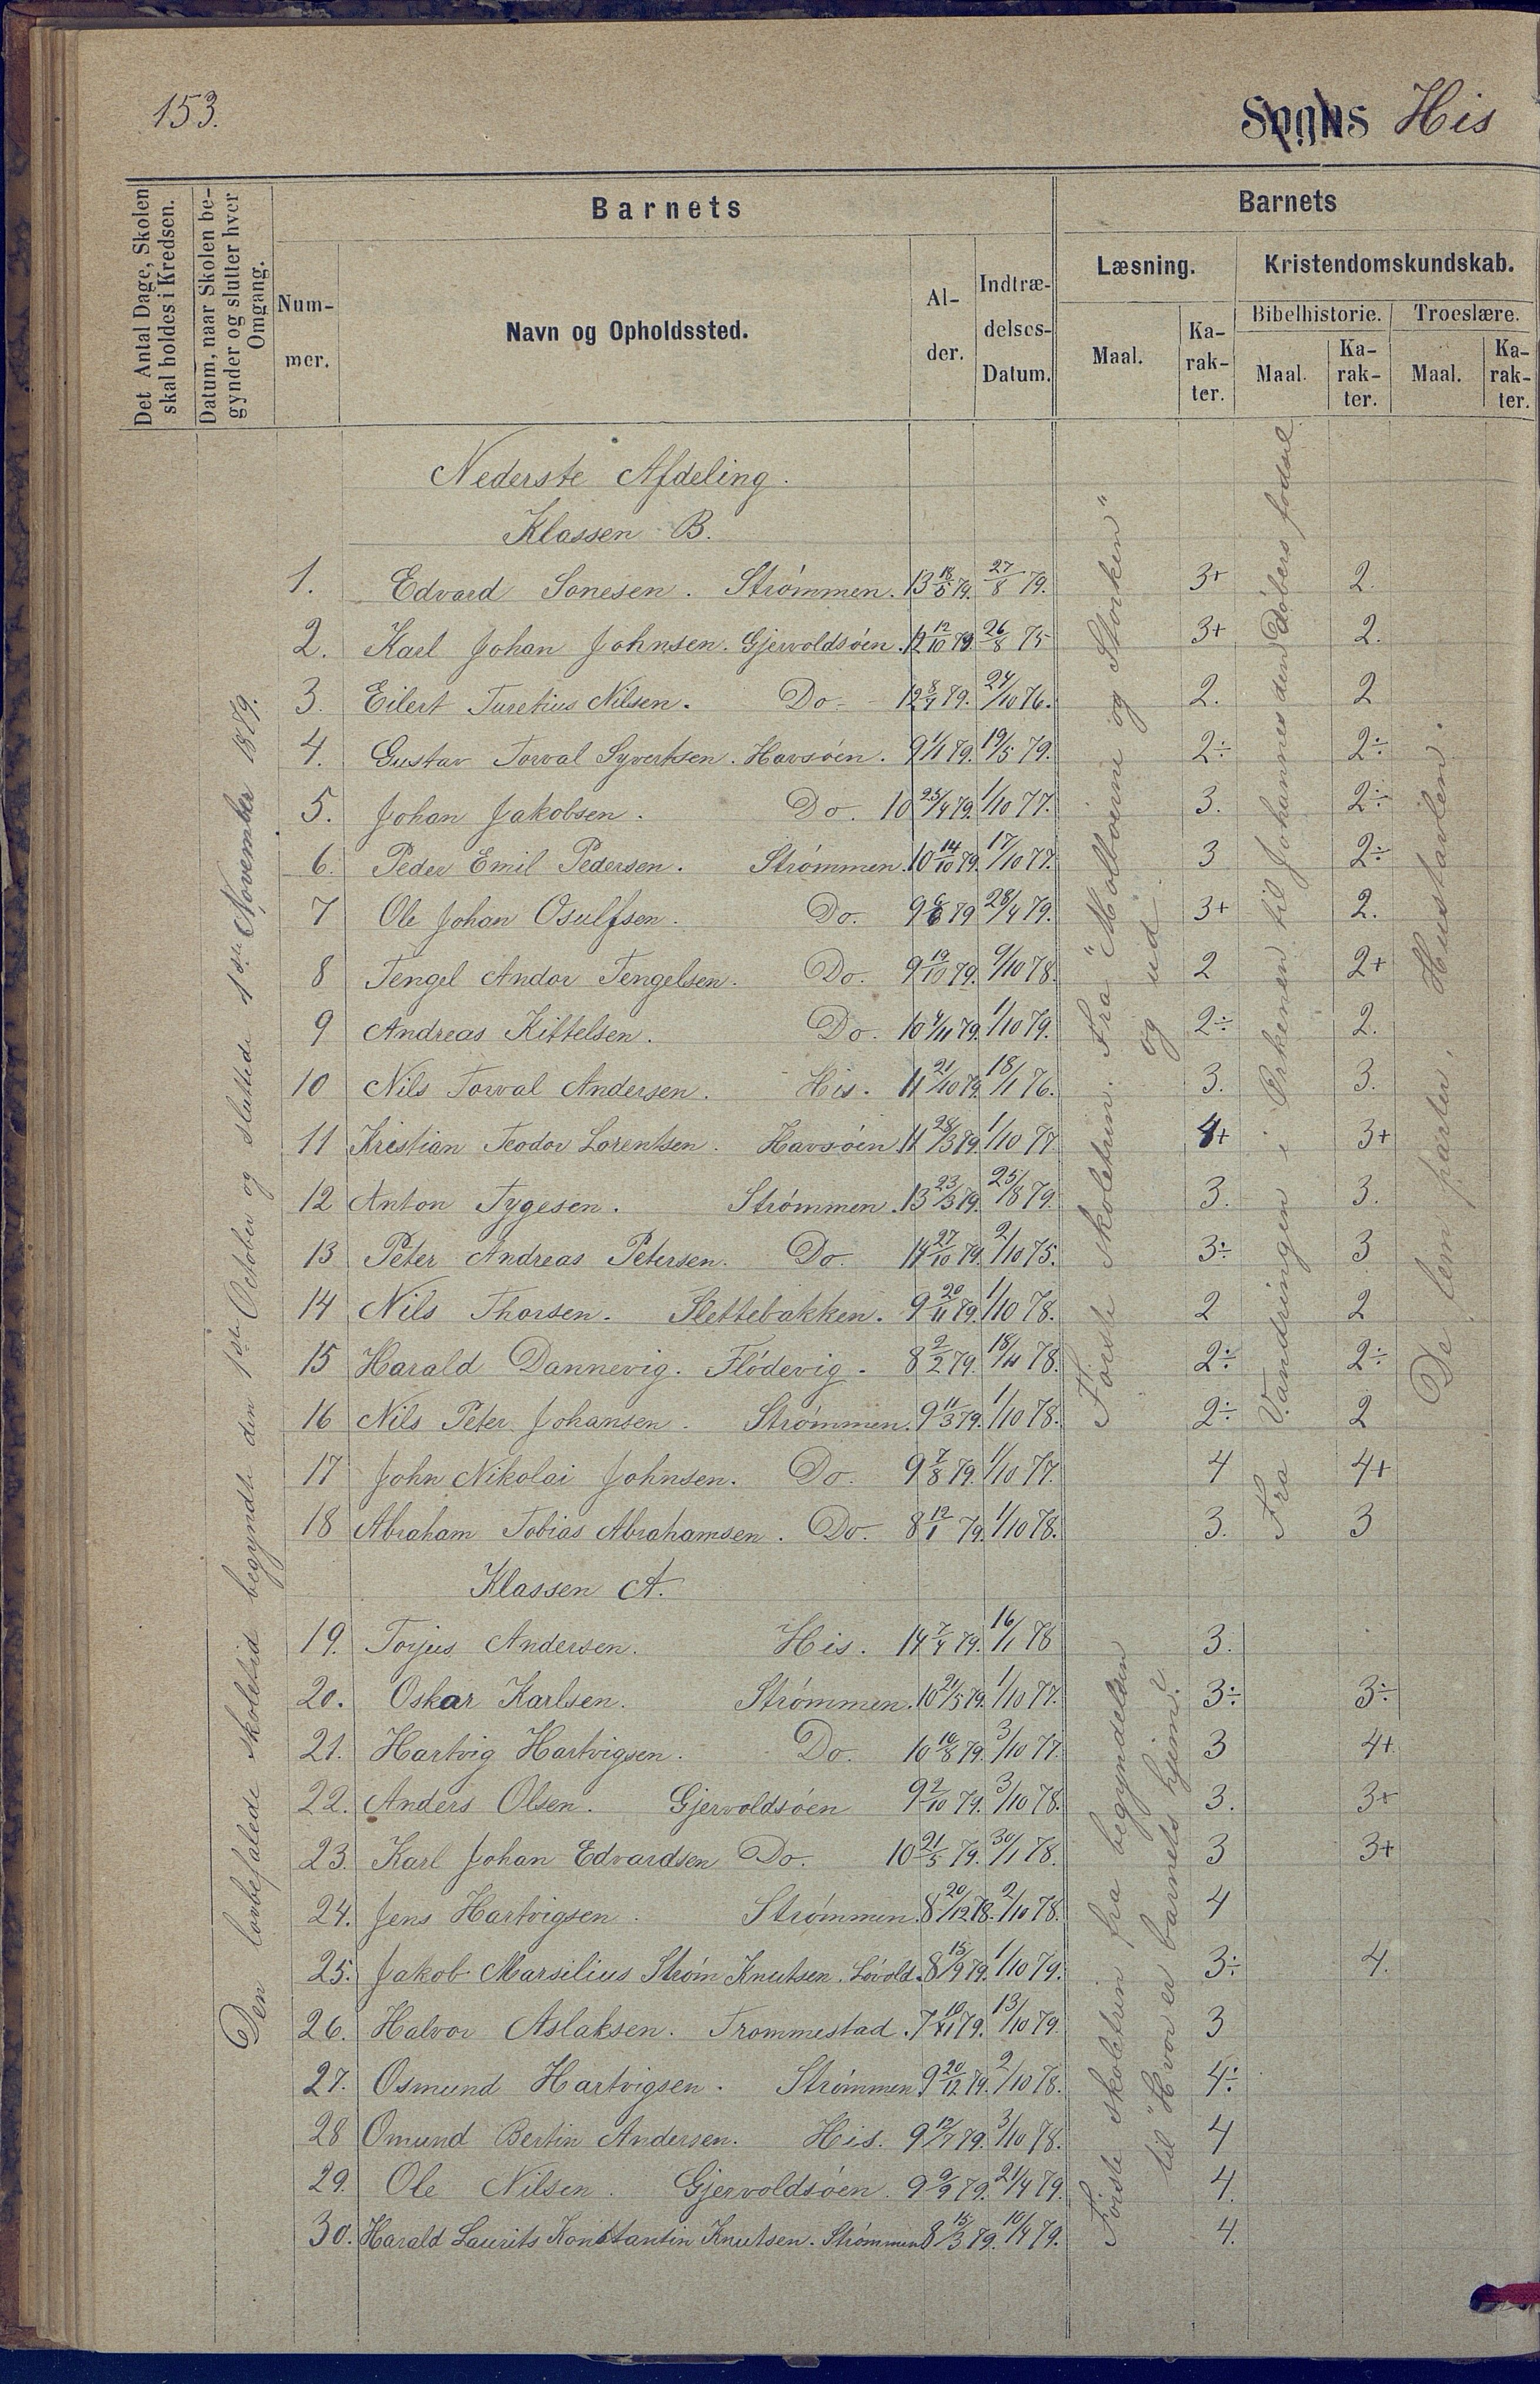 153.
Sogns His
Det Antal Dage, Skolen skal holdes i Kredsen.
Datum, naar Skolen begynder og slutter hver Omgang.
Barnets
Barnets
Nummer.
Navn og Opholdssted.
Alder.
Indtrædelses-Datum.
Læsning.
Kristendomskundskab.
Maal.
Karakter.
Bibelhistorie.
Troeslære.
Maal.
Karakter.
Maal.
Karakter.
Den lovbefalede skoletid begyndte den 1ste October og sluttede 1ste November 1879.
Nederste Afdeling.
Klassen B.
1. Edvard Sonesen. Strømmen. 13 18/5 79. 27/8 79. 3+ 2.
2. Karl Johan Johnsen. Gjervoldsøen. 12 12/10 79. 26/8 75 3+ 2.
3. Eilert Turetius Nilsen. Do. 12 8/4 79. 24/10 76. 2. 2
4. Gustav Torval Syvertsen. Havsøen. 9 1/1 79. 19/5 79. 2÷ 2÷
5. Johan Jakobsen. Do. 10 25/4 79. 1/10 77. 3. 2÷
6. Peder Emil Pedersen. Strømmen. 10 14/10 79. 17/10 77. 3 2÷
7 Ole Johan Osulfsen. Do. 9 6/6 79 28/4 79. 3+ 2.
8 Tengel Andor Tengelsen. Do. 9 19/10 79. 9/10 78. 2 2+
9 Andreas Kittelsen. Do. 10 4/11 79. 1/10 79. 2÷ 2.
10 Nils Torval Andersen. His. 11 21/10 79. 18/1 76. 3. 3.
11 Kristian Teodor Lorentsen. Havsøen. 11 28/3 79. 1/10 77. 4+ 3+
12 Anton Tygesen. Strømmen. 13 23/3 79. 25/8 79. 3. 3.
13 Peter Andreas Petersen. Do. 14 27/10 79. 2/10 75. 3÷ 3
14 Nils Thorsen. Slettebakken. 9 20/11 79. 1/10 78. 2 2
15 Harald Dannevig. Flødevig. 8 2/2 79. 18/11 78. 2÷ 2÷
16 Nils Peter Johansen. Strømmen. 9 11/3 79. 1/10 78. 2÷ 2
17 John Nikolai Johnsen. Do. 9 7/8 79. 1/10 77. 4 4+
18 Abraham Tobias Abrahamsen. Do. 8 12/1 79. 1/10 78. 3. 3
Første skoletrin. Fra "Molboerne og Storken"
og ud.
Fra Vandringen i Ørkenen til Johannes den Døbers fødsel
De fem parter, Hustavlen.
Klassen A.
19. Torjus Andersen. His. 14 7/4 79. 16/1 78 3.
20. Oskar Karlsen. Strømmen. 10 21/5 79. 1/10 77. 3÷ 3÷
21. Hartvig Hartvigsen. Do. 10 10/8 79. 3/10 77. 3 4+
22. Anders Olsen. Gjervoldsøen 9 2/10 79. 3/10 78. 3. 3+
23. Karl Johan Edvardsen Do. 10 21/5 79. 30/1 78. 3 3+
24. Jens Hartvigsen. Strømmen. 8 20/12 78. 2/10 78. 4
25. Jakob Marsilius Strøm Knutsen. Løvold. 8 15/9 79. 1/10 79. 3÷ 4.
26. Halvor Aslaksen. Trommestad. 7 10/11 79. 13/10 79. 3
27. Osmund Hartvigsen. Strømmen 9 20/12 79. 2/10 78. 4÷
28 Omund Bertin Andersen. His. 9 12/7 79. 3/10 78. 4
29. Ole Nilsen. Gjervoldsøen. 9 9/9 79. 21/4 79. 4.
30. Harald Laurits Konstantin Knutsen. Strømmen 8 15/3 79. 10/4 79. 4.
Første skoletrin fra begyndelsen
til "Hvor er barnets hjem?"